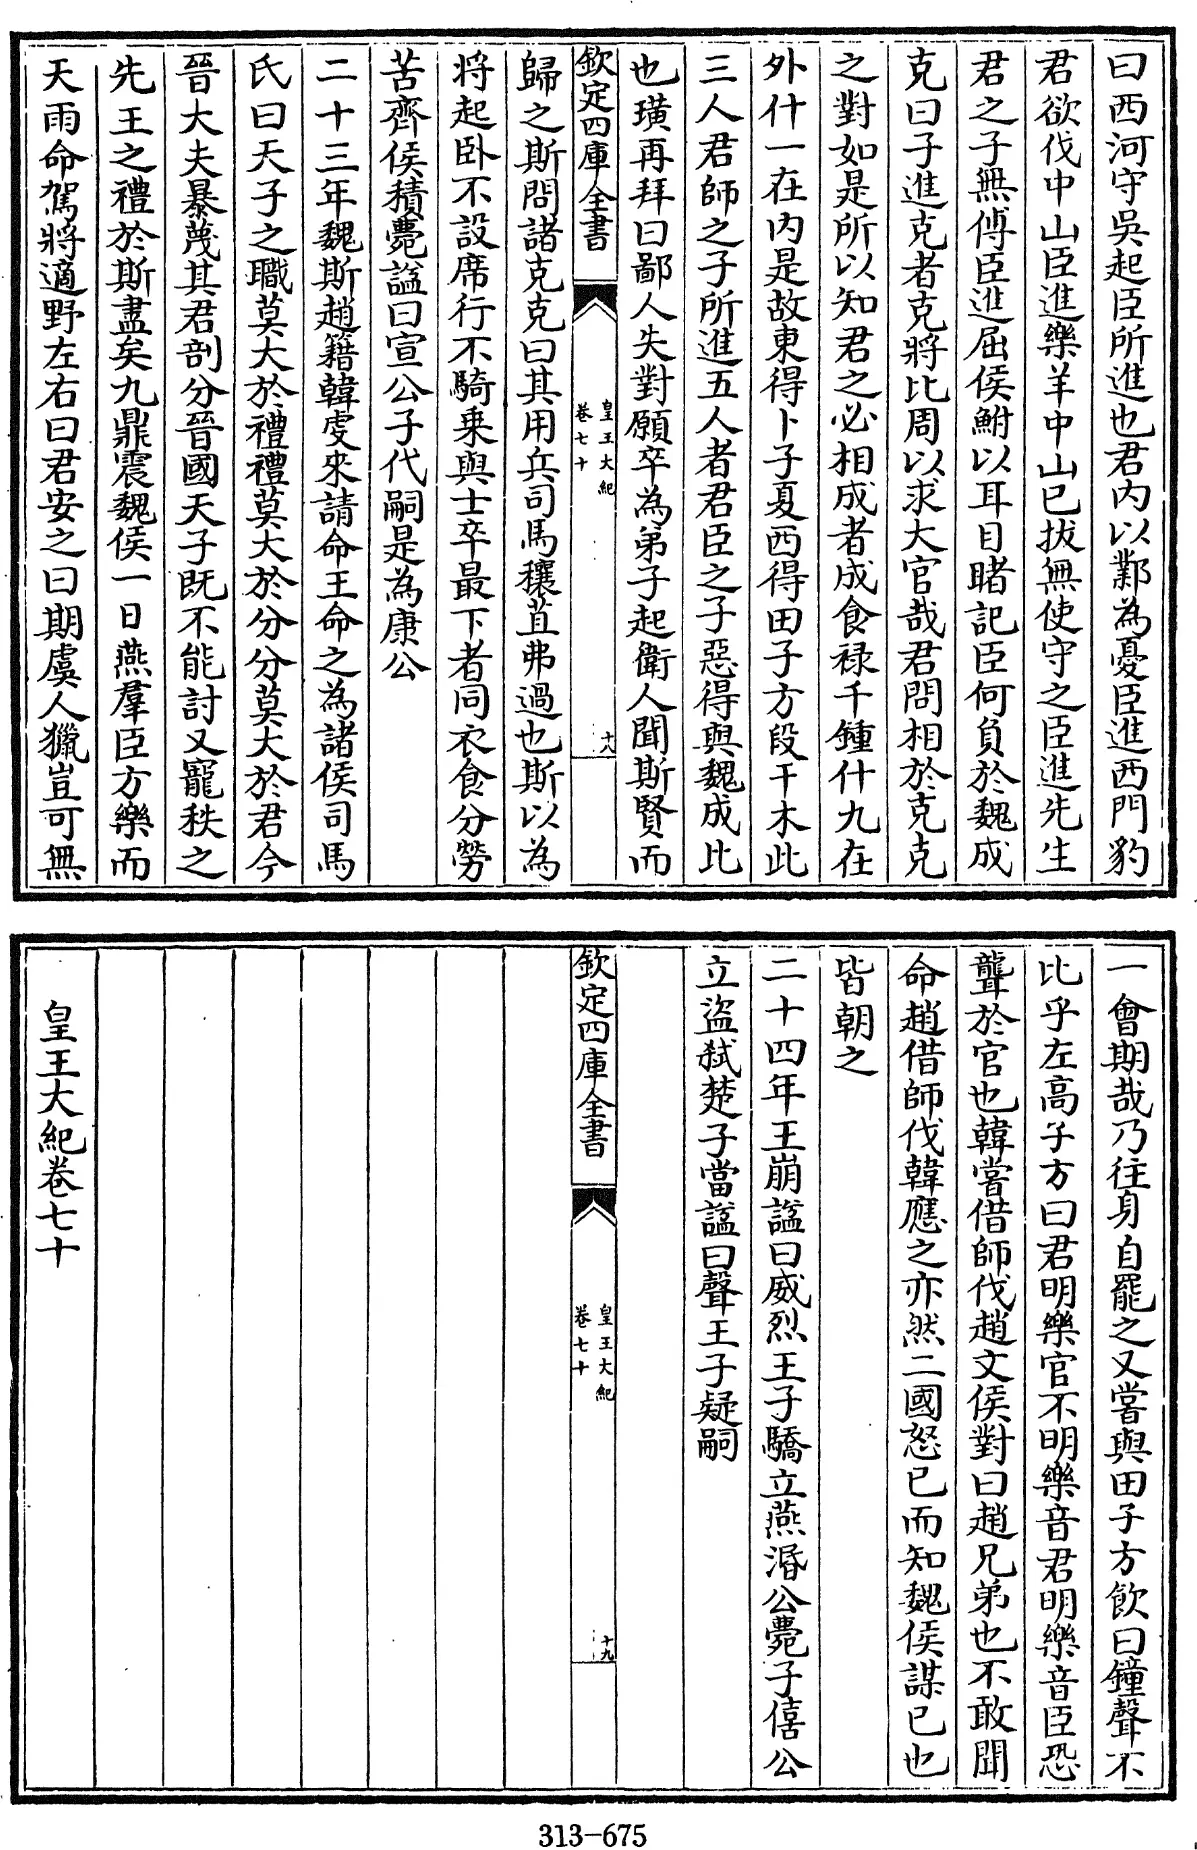 曰西河守吳起臣所進也君内以鄴為憂臣進西門豹
君欲伐中山臣進樂羊中山已拔無使守之臣進先生
君之子無傅臣進屈侯鮒以耳目睹記臣何負於魏成
克曰子進克者克將比周以求大官哉君問相於克克
之對如是所以知君之必相成者成食禄千鍾什九在
外什一在内是故東得卜子夏西得田子方段干木此
三人君師之子所進五人者君臣之子惡得與魏成比
也璜再拜曰鄙人失對願卒為弟子起衛人聞斯賢而
欽定四庫全書
皇王大紀
卷七十
十八
歸之斯問諸克克曰其用兵司馬穰苴弗過也斯以為
将起卧不設席行不騎乗與士卒最下者同衣食分勞
苦齊侯積薨諡曰宣公子代嗣是為康公
二十三年魏斯趙籍韓虔來請命王命之為諸侯司馬
氏曰天子之職莫大於禮禮莫大於分分莫大於君今
晉大夫暴蔑其君剖分晉國天子既不能討又寵秩之
先王之禮於斯盡矣九鼎震魏侯一日燕羣臣方樂而
天雨命駕將適野左右曰君安之曰期虞人獵豈可無
一會期哉乃往身自罷之又嘗與田子方飲曰鐘聲不
比乎左高子方曰君明樂官不明樂音君明樂音臣恐
聾於官也韓嘗借師伐趙文侯對曰趙兄弟也不敢聞
命趙借師伐韓應之亦然二國怒已而知魏侯謀已也
皆朝之
二十四年王崩諡曰威烈王子驕立燕湣公薨子僖公
立盜弑楚子當諡曰聲王子疑嗣
欽定四庫全書
皇王大紀
卷七十
十九
皇王大紀卷七十
313-675